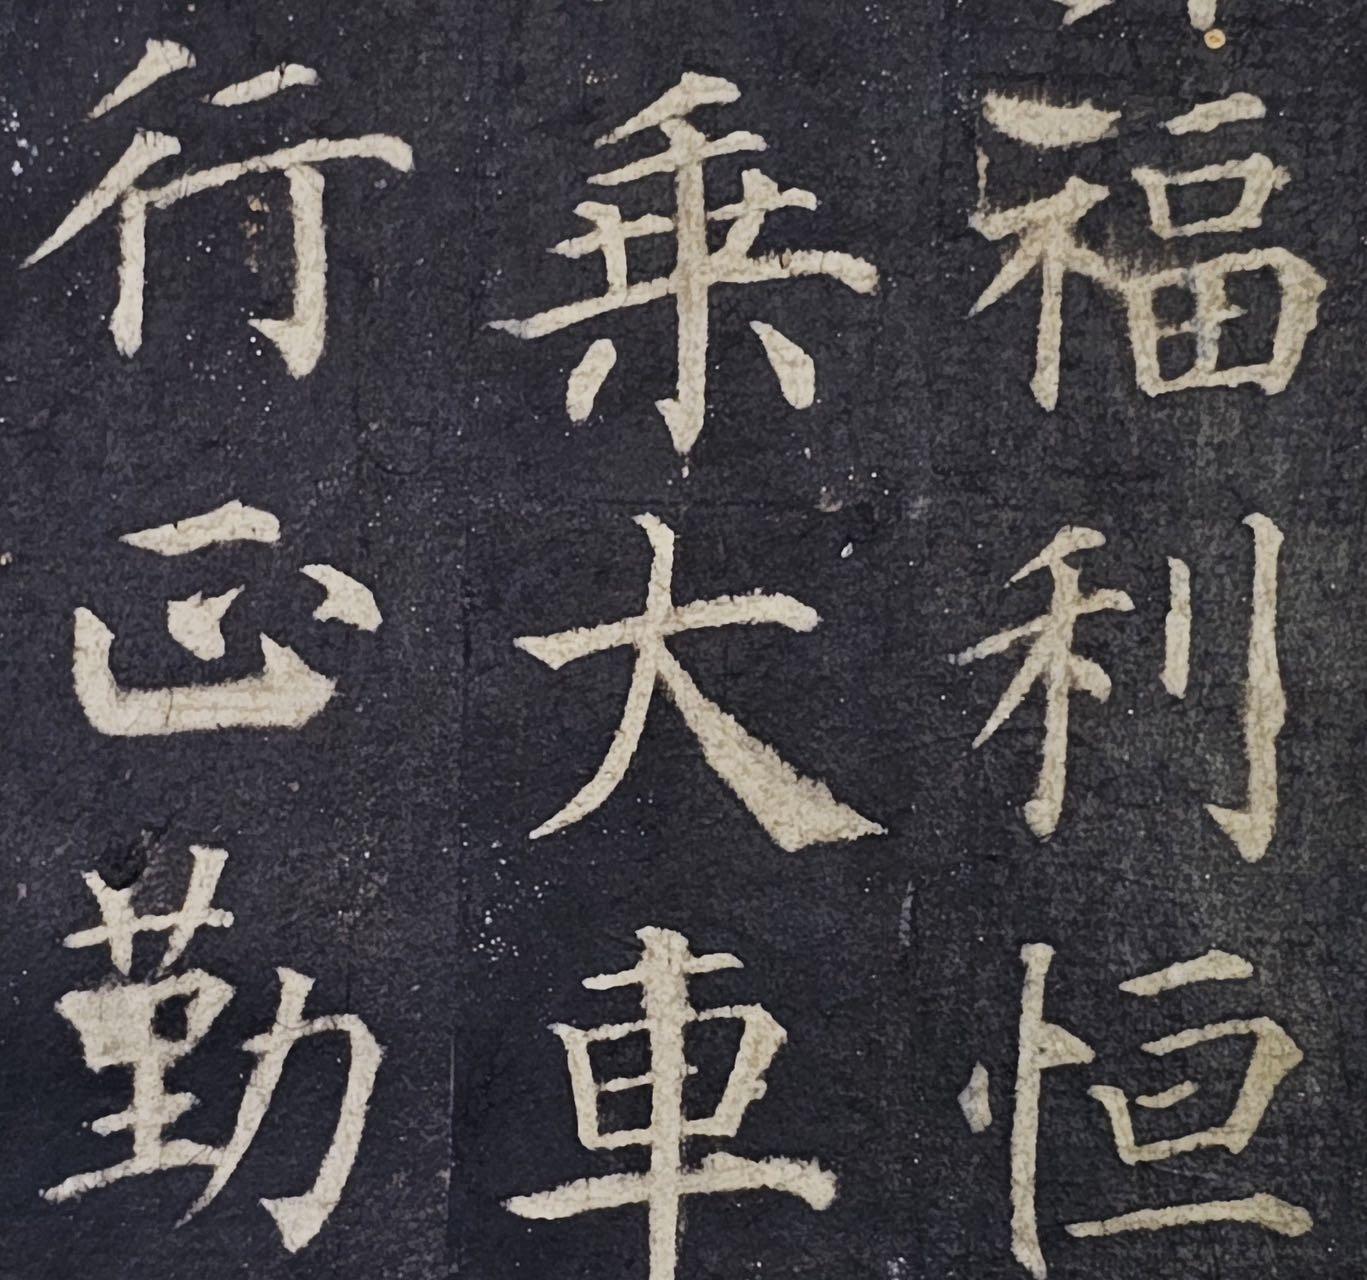 福利恒
乘大車
行正勤